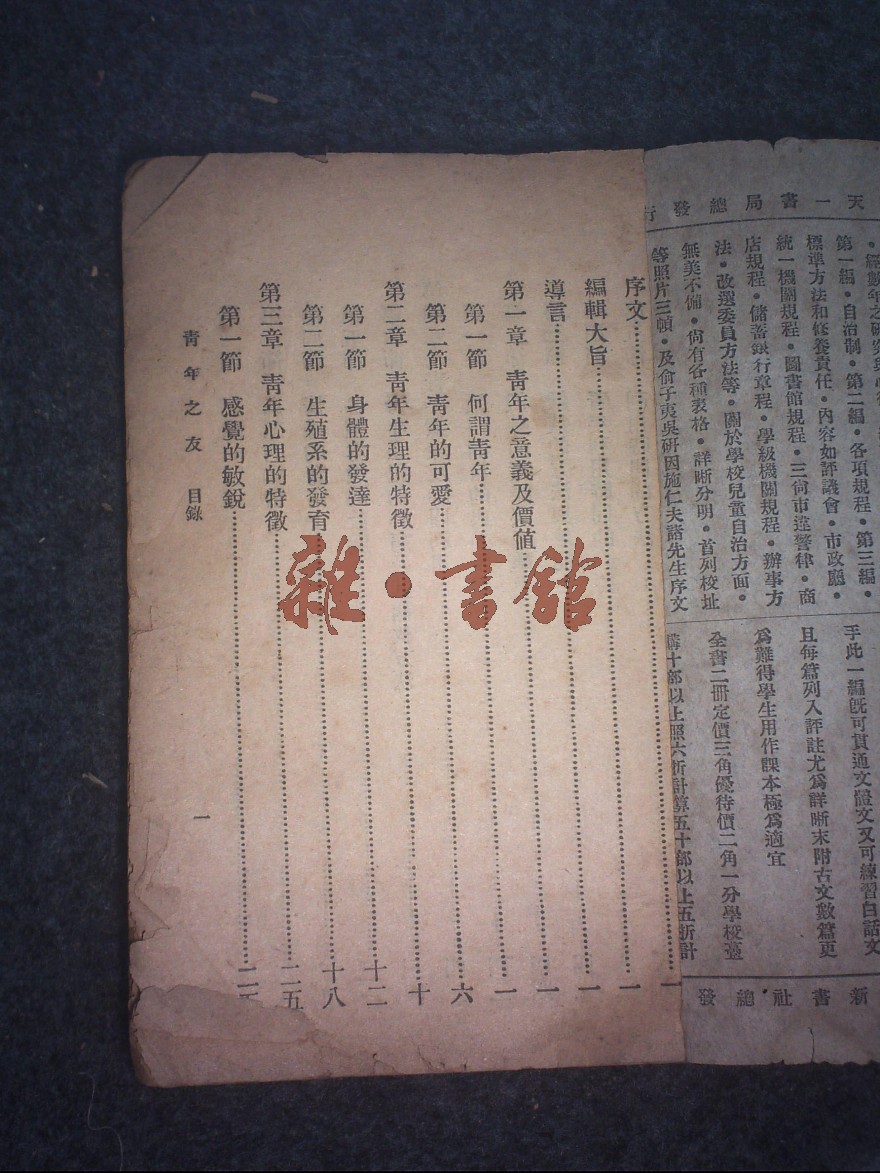 天一書局總發行
經數年之研究與心得
第一編・自治制・第二編・各項規程・第三編・
標準方法和修養責任・內容如評議會・市政廳・
統一機關規程・圖書館規程・三尙市違警律・商
店規程・儲蓄銀行章程・學級機關規程・辦事方
法・改選委員方法等・關於學校兒童自治方面・
無美不備・尙有各種表格・詳晰分明・首列校址
等照片三幀・及俞子夷吳硏因施仁夫諸先生序文
手此一編旣可貫通文體文又可練習白話文
且每篇列入評註尤爲詳晰末附古文數篇更
爲難得學生用作課本極爲適宜
全書二冊定價三角優待價二角一分學校躉
購十部以上照六折計算五十部以上五折計
新書社總發
序文……一
編輯大旨……一
導言……一
第一章 靑年之意義及價値……一
第一節 何謂靑年……一
第二節 靑年的可愛……六
第二章 靑年生理的特徵……十
第一節 身體的發達……十二
第二節 生殖系的發育……十八
第三章 靑年心理的特徵……二五
第一節 感覺的敏銳……二五
靑年之友 目錄
一
雜・書館